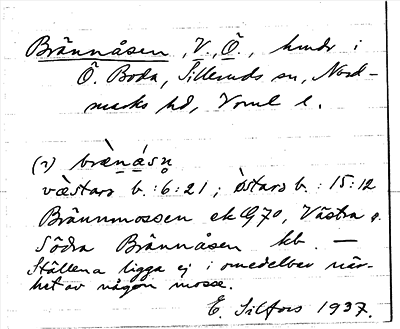 Brännåsen, V., Ö., hmdr i
Ö. Boda, Silleruds sn, Nord-
marks hd, Vrml l.
(2) brænåsn
västard b.: 6:21; östard b.: 15:12
Brännmossen ek G70, Västra o.
Södra Brännåsen kb. —
Ställena ligga ej i omedelbar när-
het av någon mosse.
E. Silfors 1937.